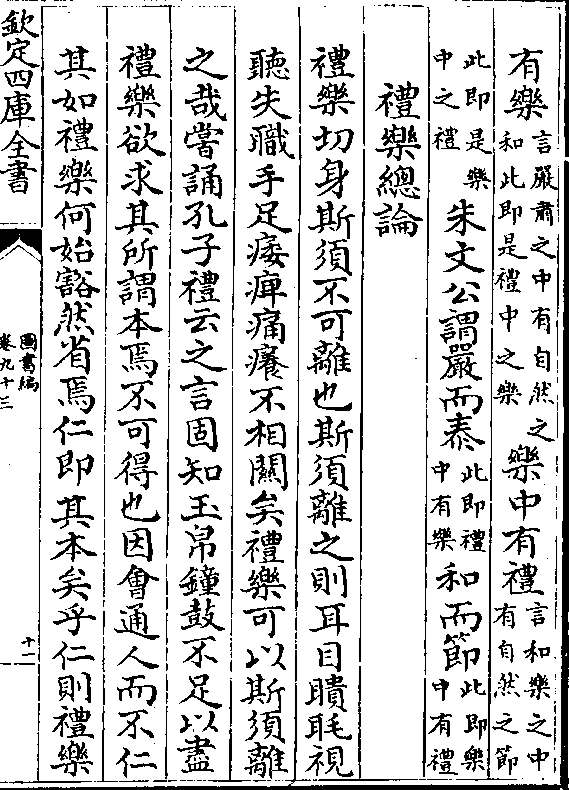 有樂言嚴肅之中有自然之和此即是禮中之樂樂中有禮言和樂之中有自然之節
此即是樂中之禮朱文公謂嚴而泰此即禮中有樂和而節此即樂中有禮
禮樂總論
禮樂切身斯須不可離也斯須離之則耳目瞶眊視
聽失職手足痿痺痛癢不相關矣禮樂可以斯須離
之哉嘗誦孔子禮云之言固知玉帛鐘鼓不足以盡
禮樂欲求其所謂本焉不可得也因會通人而不仁
其如禮樂何始豁然省焉仁即其本矣乎仁則禮樂
欽定四庫全書
圖書編
卷九十三
十一